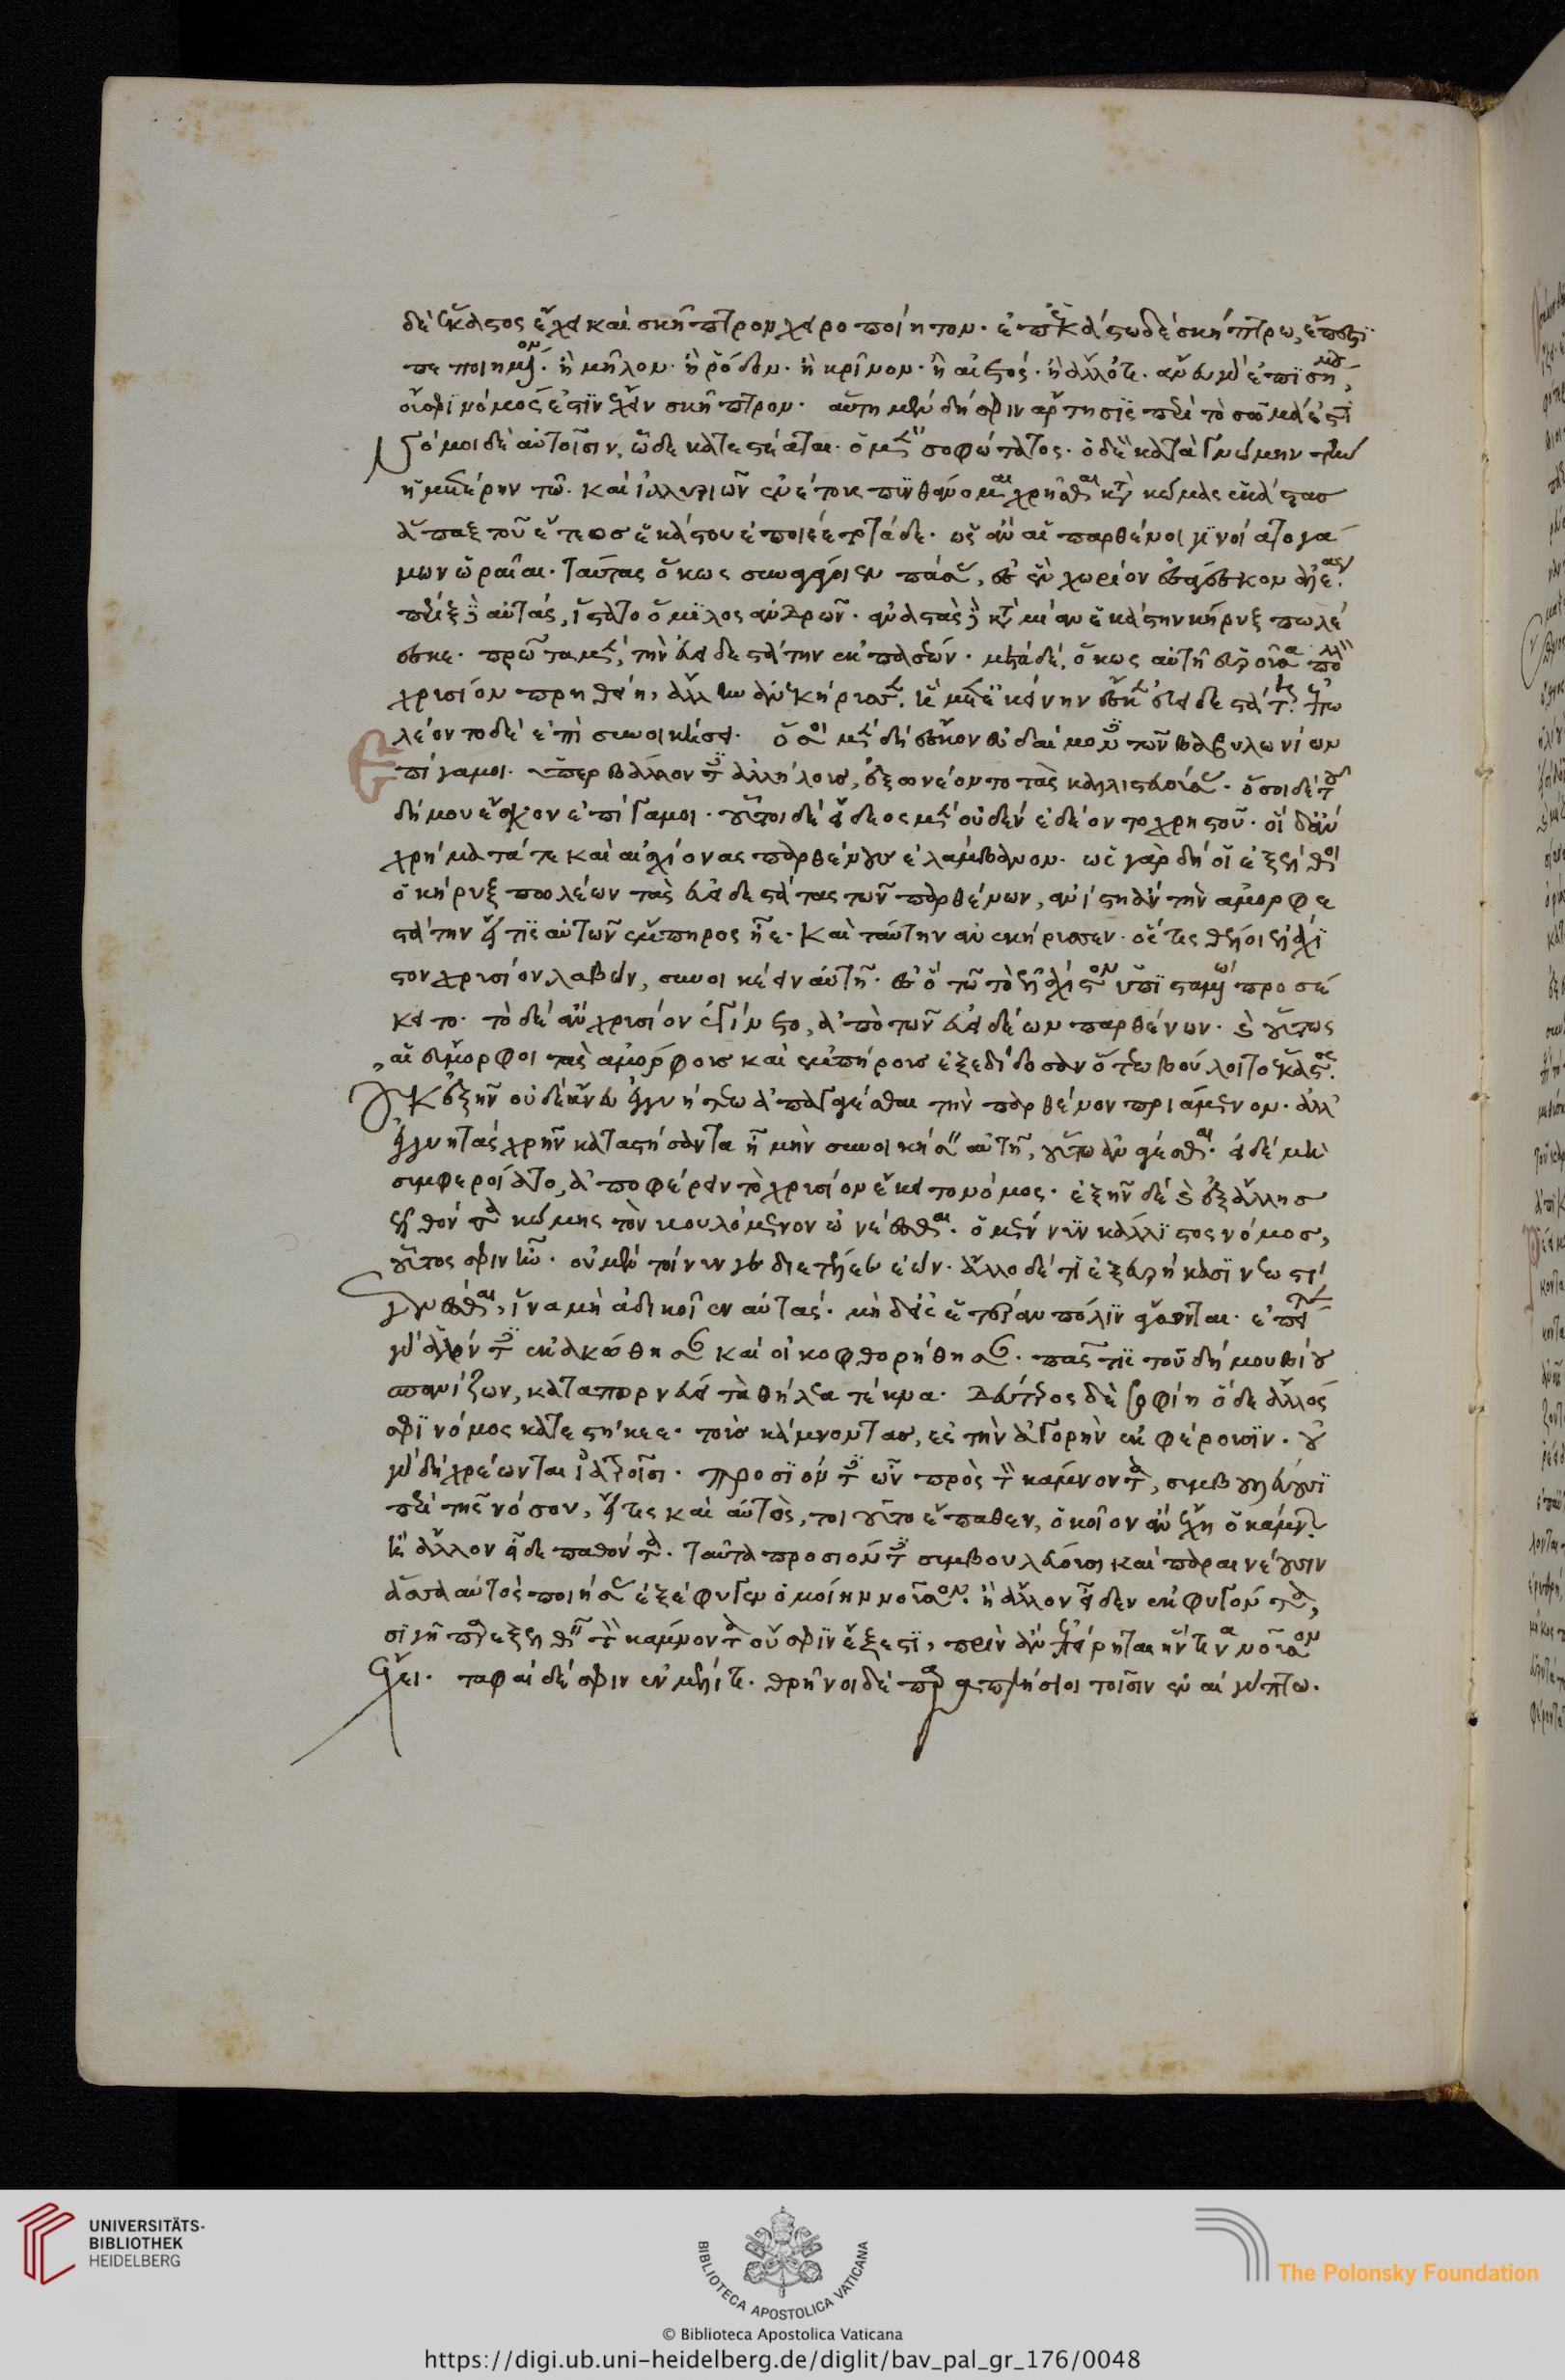 δὲ ἕκαστος ἔχει καὶ σκῆπτρον χειροποίητον· ἐπ' ἑκάστω δὲ σκήπτρω, ἔπεστι
πεποιημένον· ἢ μῆλον· ἢ ῥόδον· ἢ κρίνον· ἢ αἰετός· ἢ ἄλλό τι. ἄνευ γὰρ ἐπισήμου
οὔ σφι νόμος ἐστὶν ἔχειν σκῆπτρον· αὕτη μὲν δή σφιν ἄρτησις περὶ τὸ σῶμά ἐστι
Νόμοι δὲ αὐτοῖσιν, ὧδε κατεστέαται· ὁ μὲν σοφώτατος· ὅδε κατὰ γνώμην τὴν
ἡμετέρην τῶ καὶ ἰλλυριῶν ἐνετοὺς πυνθάνομαι χρῆσθαι κατὰ κώμας ἑκάστας
ἅπαξ τοῦ ἔτεος ἑκάστου ἐποιέετο τάδε· ὡς ἂν αἱ παρθένοι γινοίατο γά
μων ὡραῖαι· ταύτας ὅκως συναγάγοιεν πάσας, ἐς ἓν χωρίον ἐσάγεσκον ἁλέας·
πέριξ δὲ αὐτάς, ἵστατο ὅμιλος ἀνδρῶν· ἀνιστὰς δὲ κατὰ μίαν ἑκάστην κήρυξ πωλέ
εσκε· πρῶτα μὲν, τὴν εὐειδεστάτην ἐκ πασέων· μετὰ δέ, ὅκως αὐτὴ εὑροῦσα πολλὸν
χρυσίον πρηθείη, ἄλλην ἀνεκήρυσσε· ἣ μετ' ἐκείνην ἔσκε εὐειδεστάτη· ἐπω
λέοντο δὲ ἐπὶ συνοικήσει· ὅσοι μὲν δὴ ἔσκον εὐδαίμονες τῶν βαβυλωνίων
ἐπίγαμοι· ὑπερβάλλοντες ἀλλήλους, ἐξωνέοντο τὰς καλλιστευούσας· ὅσοι δὲ τοῦ
δήμου ἔσκον ἐπίγαμοι· οὗτοι δὲ εἴδεος μὲν οὐδὲν ἐδέοντο χρηστοῦ· οἱ δ' ἂν
χρήματά τε καὶ αἰσχίονας παρθένους ἐλάμβανον· ὡς γὰρ δὴ οἱ ἐξέλθοι
ὁ κήρυξ πωλέων τὰς εὐειδεστάτας τῶν παρθένων, ἀνίστη ἂν τὴν ἀμορφε
στάτην ἢ εἴ τις αὐτῶν ἔμπηρος ἦε· καὶ ταύτην ἀνεκήρυσσεν· ὅστις θέλοι ἐλάχι
στον χρυσίον λαβών, συνοικέειν αὐτῇ· ἐς ὃ τῶ τὸ ἐλάχιστον ὑπισταμένω προσέ
κειτο· τὸ δὲ ἂν χρυσίον ἐγίνετο, ἀπὸ τῶν εὐειδέων παρθένων· καὶ οὕτως
αἱ εὔμορφοι τὰς ἀμόρφους καὶ ἐμπήρους ἐξεδίδοσαν ὅτεω βούλοιτο ἕκαστος.
ἐκ ἐξῆν οὐδὲ ἄνευ ἐγγυητέω ἀπαγαγέσθαι τὴν παρθένον πριάμενον· ἀλλ'
ἐγγυητὰς χρῆν καταστήσαντα ἦ μὴν συνοικήσειν αὐτῇ, οὕτω ἀνάγεσθαι· εἰ δὲ μὴ
συμφεροίατο, ἀποφέρειν τὸ χρυσίον ἔκειτο νόμος· ἐξῆν δὲ καὶ ἐξ ἄλλης
ἐλθόντα κώμης τὸν βουλόμενον ὠνέεσθαι· ὁ μέν νυν κάλλιστος νόμος,
οὗτος σφιν ἦν· οὐ μὲν τοί νυν γε διετέλεσε ἐών· ἄλλο δέ τι ἐξευρήκασι νεωστὶ
γενέσθαι, ἵνα μὴ ἀδικοῖεν αὐτάς· μὴ δ' εἰς ἑτέραν πόλιν ἄγωνται· ἐπεί τε
γὰρ ἁλόντες ἐκακώθησαν καὶ οἰκοφθορήθησαν· πᾶς τις τοῦ δήμου βίου
σπανίζων, καταπορνεύει τὰ θήλεα τέκνα· Δεύτερος δὲ σοφίη ὅδε ἄλλος
σφι νόμος κατεστήκεε· τοὺς κάμνοντας, ἐς τὴν ἀγορὴν ἐκφέρουσιν· οὐ
γὰρ δὴ χρέωνται ἰατροῖσι· προσιόντες ὦν πρὸς τὸν κάμνοντα, συμβουλεύουσι
περὶ τῆς νόσου, εἴ τις καὶ αὐτὸς, τοιοῦτο ἔπαθεν, ὁκοῖον ἂν ἔχῃ ὁ κάμνων·
ἢ ἄλλον εἶδε παθόντα. ταῦτα προσιόντες συμβουλεύουσι καὶ παραινέουσιν
ἅσσα αὐτὸς ποιήσας ἐξέφυγεν ὁμοίην νοῦσον· ἢ ἄλλον εἶδεν ἐκφυγόντα,
σιγῇ παρεξελθεῖν τὸν κάμνοντα οὔ σφιν ἔξεστι, πρὶν ἂν ἐπείρηται ἥντινα νοῦσον
ἔχει· ταφαὶ δέ σφιν ἐν μέλιτι· θρῆνοι δὲ παραπλήσιοι τοῖσιν ἐν αἰγύπτω.
UNIVERSITÄTS-
BIBLIOTHEK
HEIDELBERG
BIBLIOTECA APOSTOLICA VATICANA
The Polonsky Foundation
© Biblioteca Apostolica Vaticana
https://digi.ub.uni-heidelberg.de/diglit/bav_pal_gr_176/0048